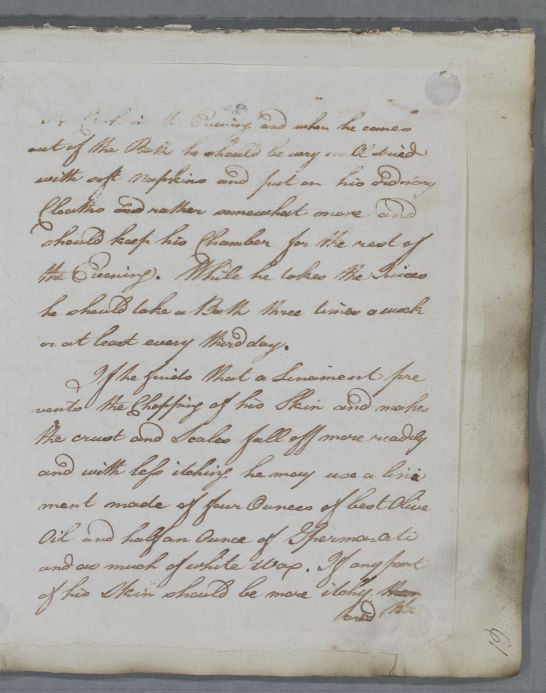 in the Evening and when he comes
out of the Bath he should be very well dried
with soft Napkins and put on his ordinary
Cloaths and rather somewhat more and
should keep his Chamber for the rest of
the Evening. While he takes the Juices
he should take a Bath three times a week
or at least every third day.
If he finds that a Linament pre
vents the Chopping of his Skin and makes
the crust and Scales fall off more readily
and with less itching he may use a lini
ment made of four Ounces of best Olive
Oil and half an Ounce of Spermaceti
and as much of white Wax. If any part
of his Skin should be more itchy than
and the
61